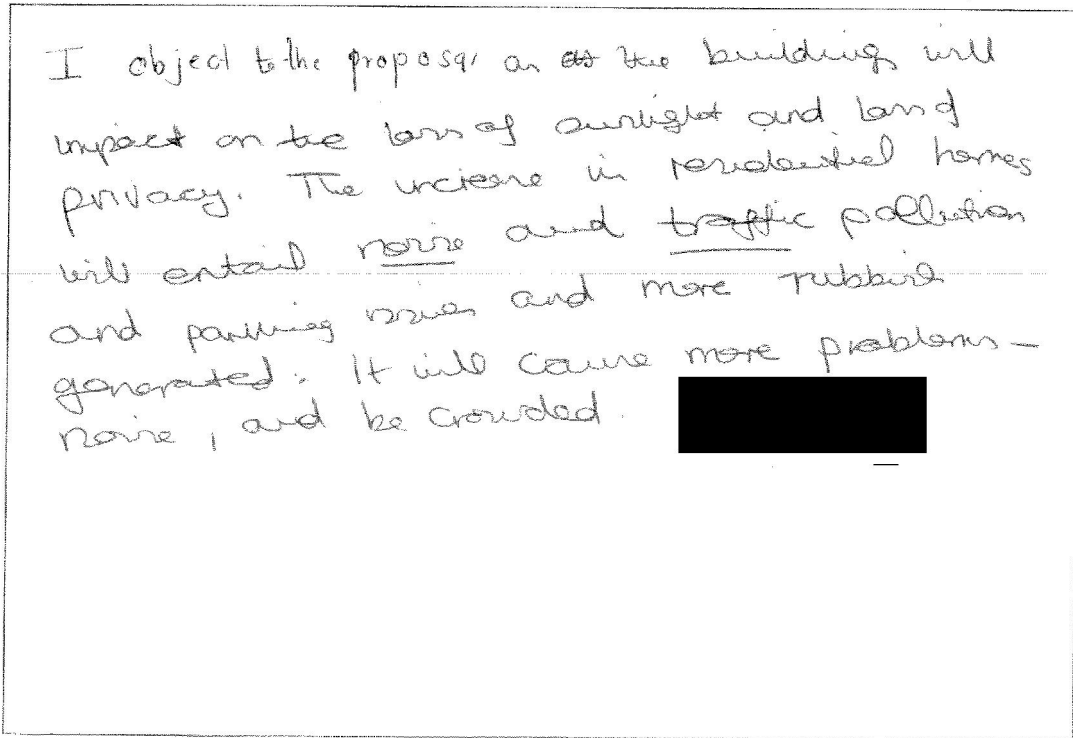 I object to the proposal as the building will
impact on the loss of sunlight and loss of
privacy. The increase in residential homes
will entail noise and traffic pollution
and parking issues and more rubbish
generated. It will cause more problems -
noise, and be crowded.